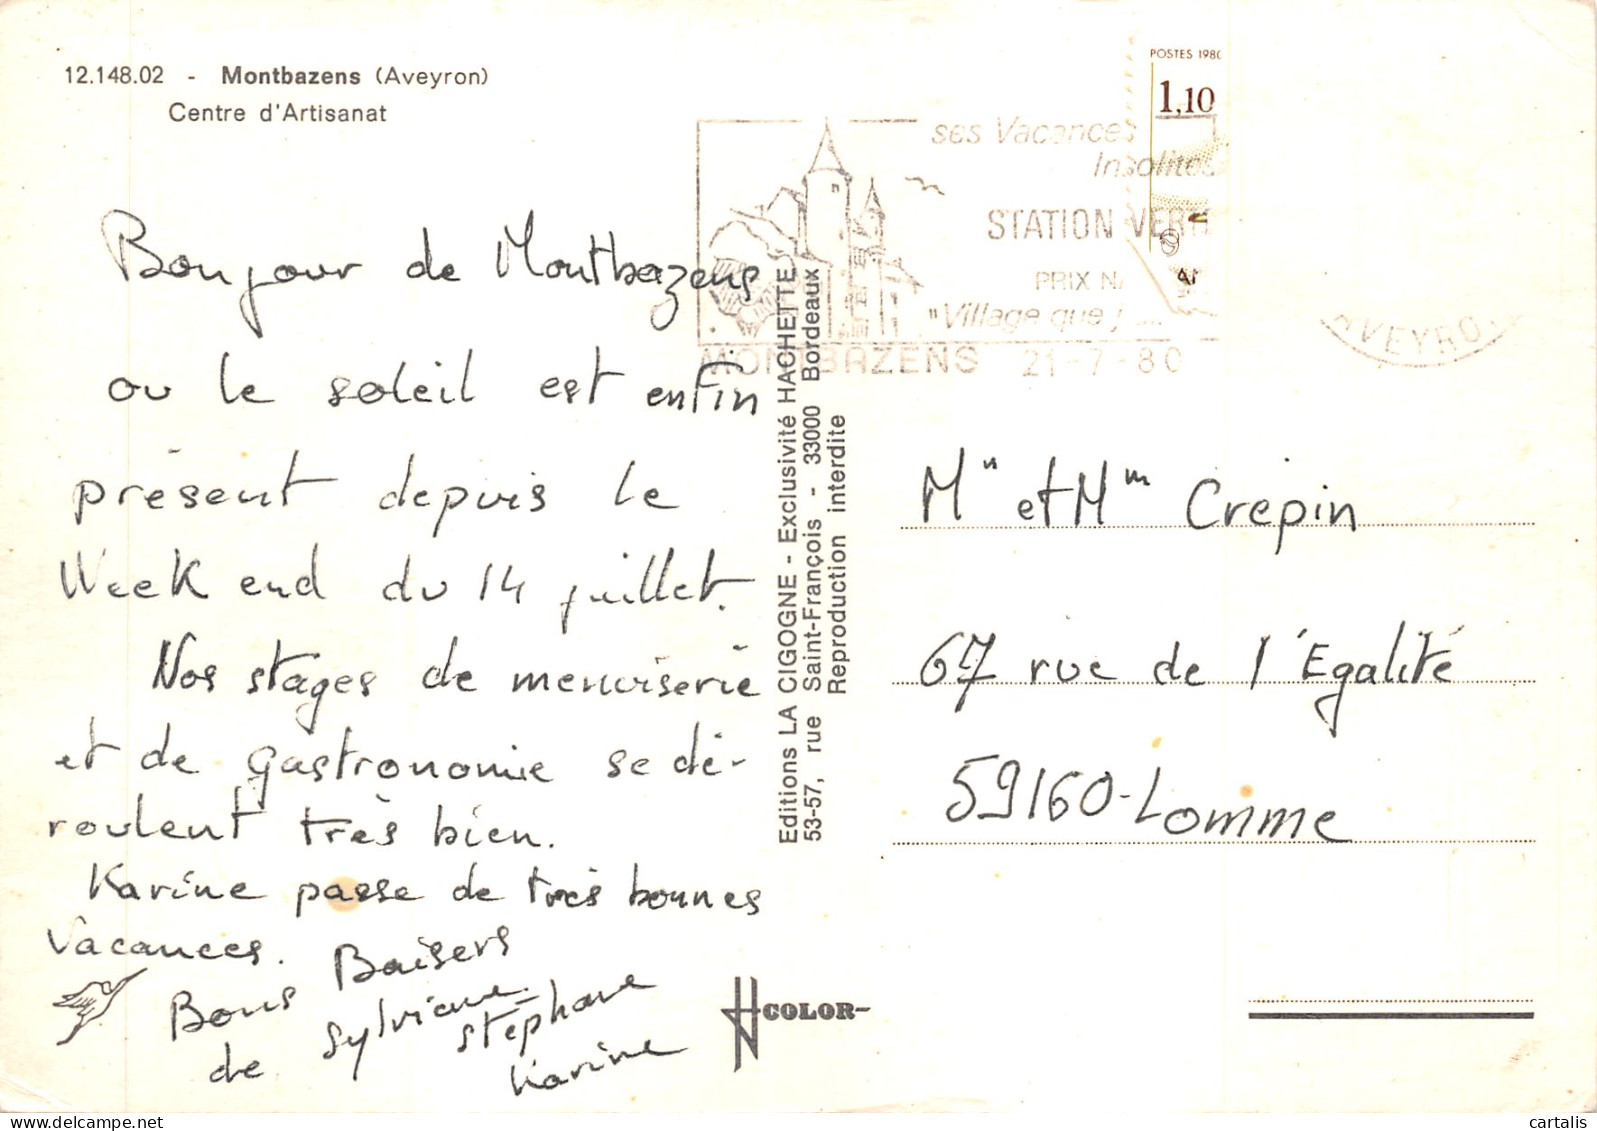 12.148.02 - Montbazens (Aveyron)
Centre d'Artisanat
POSTES 1980
1,10
ses Vacances
Insolites
STATION VERT
PRIX NA
"Village que j
MONTBAZENS 21-7-80
AVEYRO
Bonjour de Montbazens
ou le soleil est enfin
présent depuis le
Week end du 14 juillet.
Nos stages de menuiserie
et de gastronomie se dé-
roulent très bien.
Karine passe de très bonnes
vacances.
Bons Baisers
de Sylviane
Stéphane
Karine
Editions LA CIGOGNE - Exclusivité HACHETTE
53-57, rue Saint-François - 33000 Bordeaux
Reproduction interdite
Mr et Mm Crepin
67 rue de l'Egalité
59160-Lomme
COLOR
cartalis